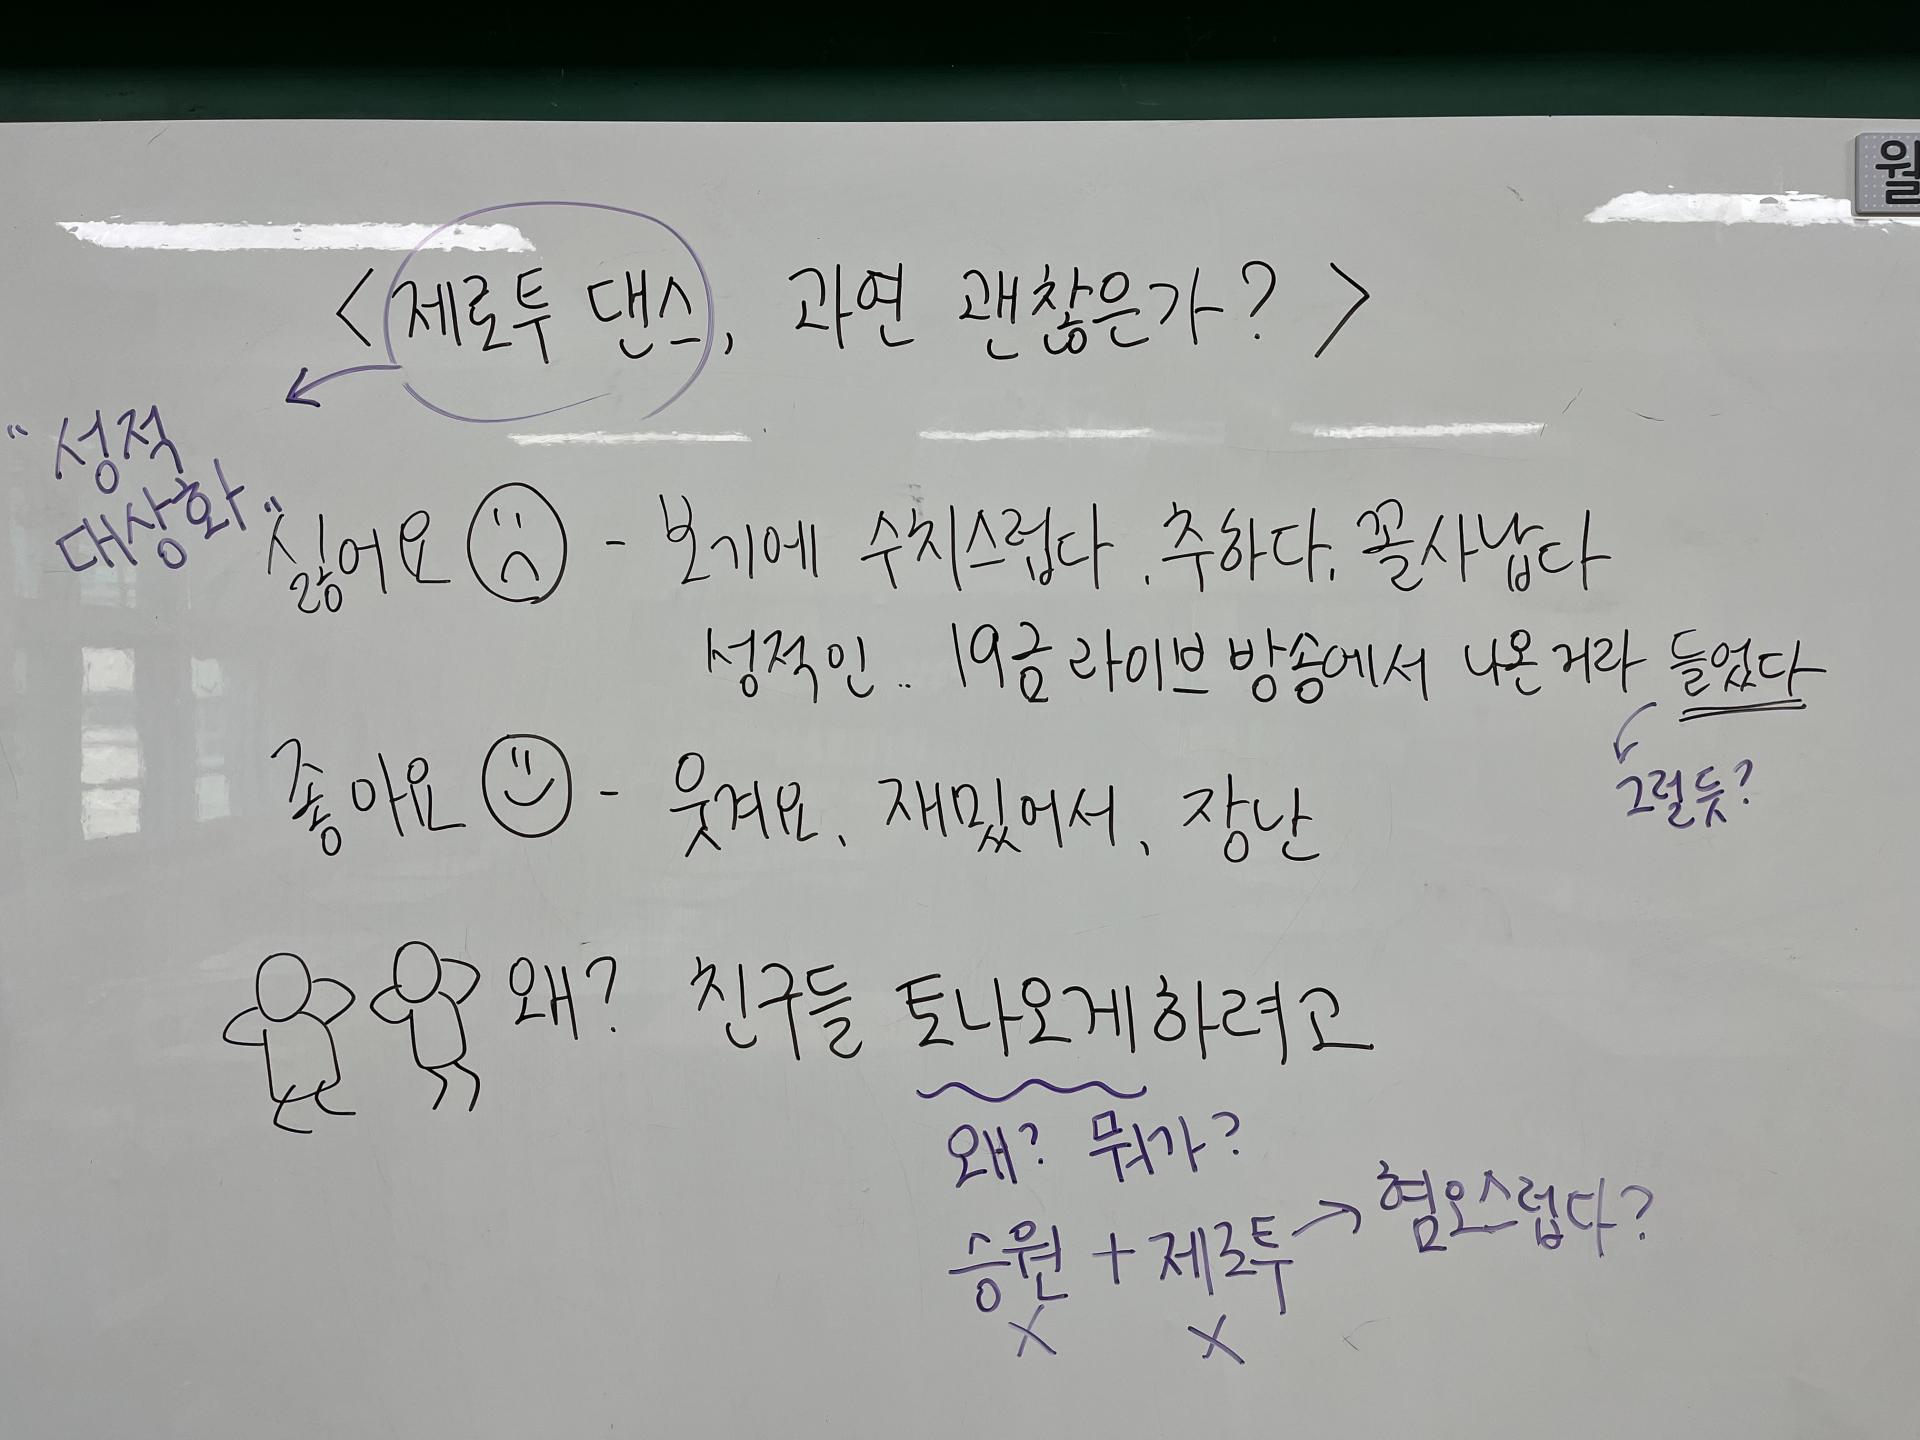 월
<제로투 댄스, 과연 괜찮은가?>
"성적
대상화"
싫어요 - 보기에 수치스럽다, 추하다, 꼴사납다
성적인.. 19금 라이브 방송에서 나온거라 들었다
그럴듯?
좋아요 - 웃겨요, 재밌어서, 장난
왜? 친구들 토나오게하려고
왜? 뭐가?
승원 + 제로투 → 혐오스럽다?
X X